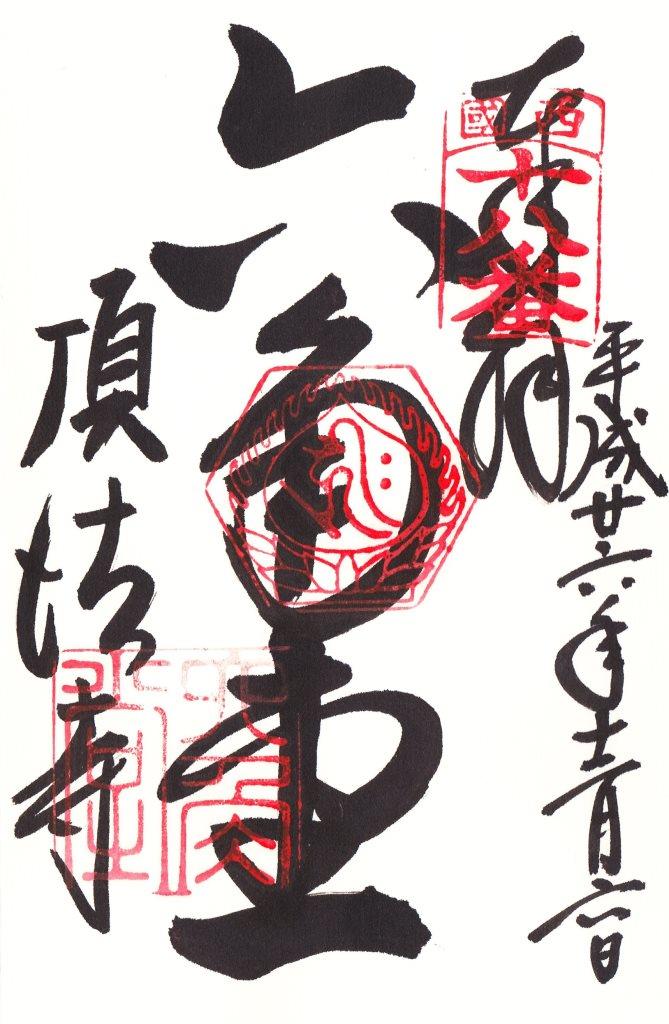 奉拝
西國
十八番
平成廿六年十二月六日
六角堂
頂法寺
六角堂